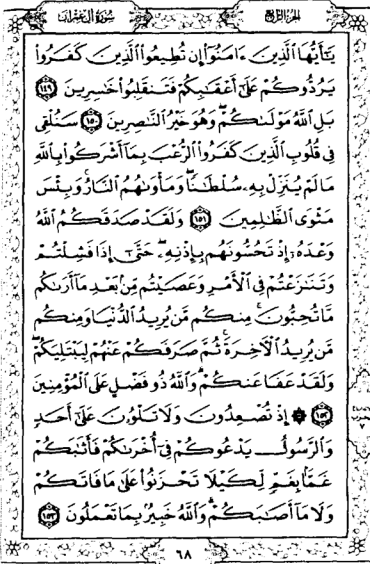 الجزء الرابع
سورة آل عمران
يَـٰٓأَيُّهَا ٱلَّذِينَ ءَامَنُوٓا۟ إِن تُطِيعُوا۟ ٱلَّذِينَ كَفَرُوا۟
يَرُدُّوكُمْ عَلَىٰٓ أَعْقَـٰبِكُمْ فَتَنقَلِبُوا۟ خَـٰسِرِينَ ١٤٩
بَلِ ٱللَّهُ مَوْلَىٰكُمْ وَهُوَ خَيْرُ ٱلنَّـٰصِرِينَ ١٥٠ سَنُلْقِى
فِى قُلُوبِ ٱلَّذِينَ كَفَرُوا۟ ٱلرُّعْبَ بِمَآ أَشْرَكُوا۟ بِٱللَّهِ
مَا لَمْ يُنَزِّلْ بِهِۦ سُلْطَـٰنًا وَمَأْوَىٰهُمُ ٱلنَّارُ وَبِئْسَ
مَثْوَى ٱلظَّـٰلِمِينَ ١٥١ وَلَقَدْ صَدَقَكُمُ ٱللَّهُ
وَعْدَهُۥٓ إِذْ تَحُسُّونَهُم بِإِذْنِهِۦ حَتَّىٰٓ إِذَا فَشِلْتُمْ
وَتَنَـٰزَعْتُمْ فِى ٱلْأَمْرِ وَعَصَيْتُم مِّنۢ بَعْدِ مَآ أَرَىٰكُم
مَّا تُحِبُّونَ مِنكُم مَّن يُرِيدُ ٱلدُّنْيَا وَمِنكُم
مَّن يُرِيدُ ٱلْـَٔاخِرَةَ ثُمَّ صَرَفَكُمْ عَنْهُمْ لِيَبْتَلِيَكُمْ
وَلَقَدْ عَفَا عَنكُمْ وَٱللَّهُ ذُو فَضْلٍ عَلَى ٱلْمُؤْمِنِينَ
١٥٢ ۞ إِذْ تُصْعِدُونَ وَلَا تَلْوُۥنَ عَلَىٰٓ أَحَدٍ
وَٱلرَّسُولُ يَدْعُوكُمْ فِىٓ أُخْرَىٰكُمْ فَأَثَـٰبَكُمْ
غَمًّۢا بِغَمٍّ لِّكَيْلَا تَحْزَنُوا۟ عَلَىٰ مَا فَاتَكُمْ
وَلَا مَآ أَصَـٰبَكُمْ وَٱللَّهُ خَبِيرٌۢ بِمَا تَعْمَلُونَ ١٥٣
٦٨